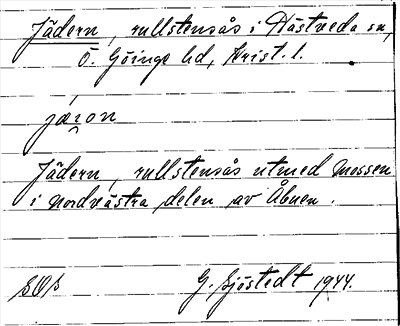 Jädern, rullstensås i Hästveda sn,
Ö. Göinge hd, Krist. l.
Jädern, rullstensås utmed mossen
i nordvästra delen av Åbuen.
SOS G. Sjöstedt 1944.